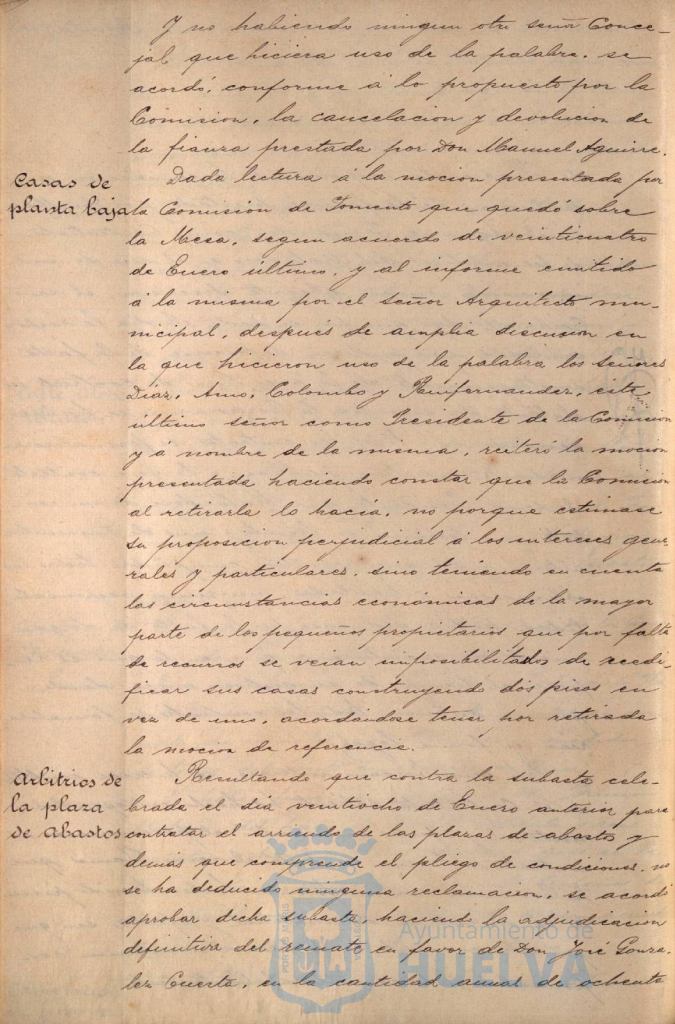 Y no habiendo ningun otro señor Conce-
jal que hiciera uso de la palabra, se
acordó, conforme á lo propuesto por la
Comision, la cancelacion y devolucion de
la fianza prestada por Don Manuel Aguirre.
Casas de
planta baja
Dada lectura á la mocion presentada por
la Comision de Fomento que quedó sobre
la Mesa, segun acuerdo de veinticuatro
de Enero último, y al informe emitido
á la misma por el señor Arquitecto mu-
nicipal, después de amplia discusion en
la que hicieron uso de la palabra los señores
Díaz, Amo, Colombo y Renfernandez, este
último señor como Presidente de la Comision
y á nombre de la misma, reiteró la mocion
presentada haciendo constar que la Comision
al retirarla lo hacía, no porque estimase
su proposicion perjudicial á los intereses gene-
rales y particulares, sino teniendo en cuenta
las circunstancias económicas de la mayor
parte de los pequeños propietarios que por falta
de recursos se veian imposibilitados de reedi-
ficar sus casas construyendo dos pisos en
vez de uno, acordándose tener por retirada
la mocion de referencia.
Arbitrios de
la plaza
de Abastos
Resultando que contra la subasta cele-
brada el día veintiocho de Enero anterior para
contratar el arriendo de las plazas de abastos y
demás que comprende el pliego de condiciones, no
se ha deducido ninguna reclamacion, se acordó
aprobar dicha subasta, haciendo la adjudicacion
definitiva del remate en favor de Don José Gonza-
lez Cuesta, en la cantidad anual de ochenta
Ayuntamiento de
HUELVA